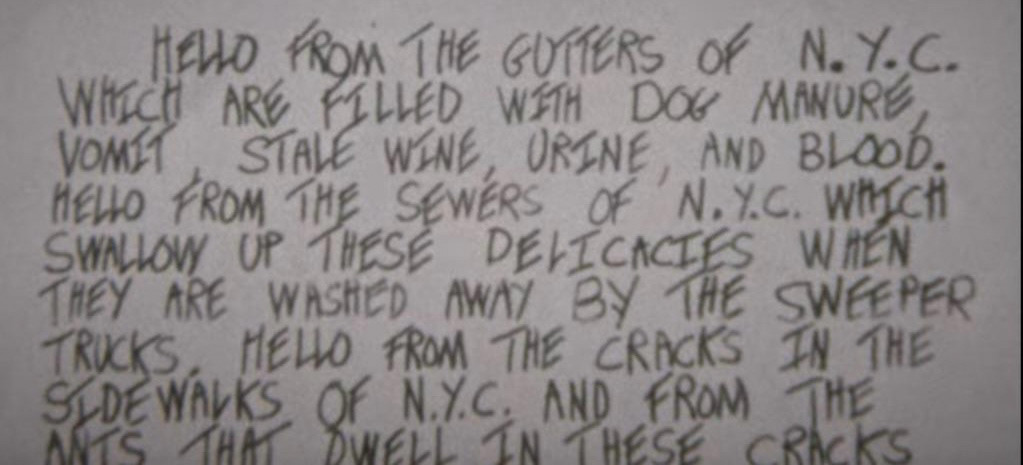 HELLO FROM THE GUTTERS OF N.Y.C.
WHICH ARE FILLED WITH DOG MANURE,
VOMIT, STALE WINE, URINE, AND BLOOD.
HELLO FROM THE SEWERS OF N.Y.C. WHICH
SWALLOW UP THESE DELICACIES WHEN
THEY ARE WASHED AWAY BY THE SWEEPER
TRUCKS. HELLO FROM THE CRACKS IN THE
SIDEWALKS OF N.Y.C. AND FROM THE
ANTS THAT DWELL IN THESE CRACKS